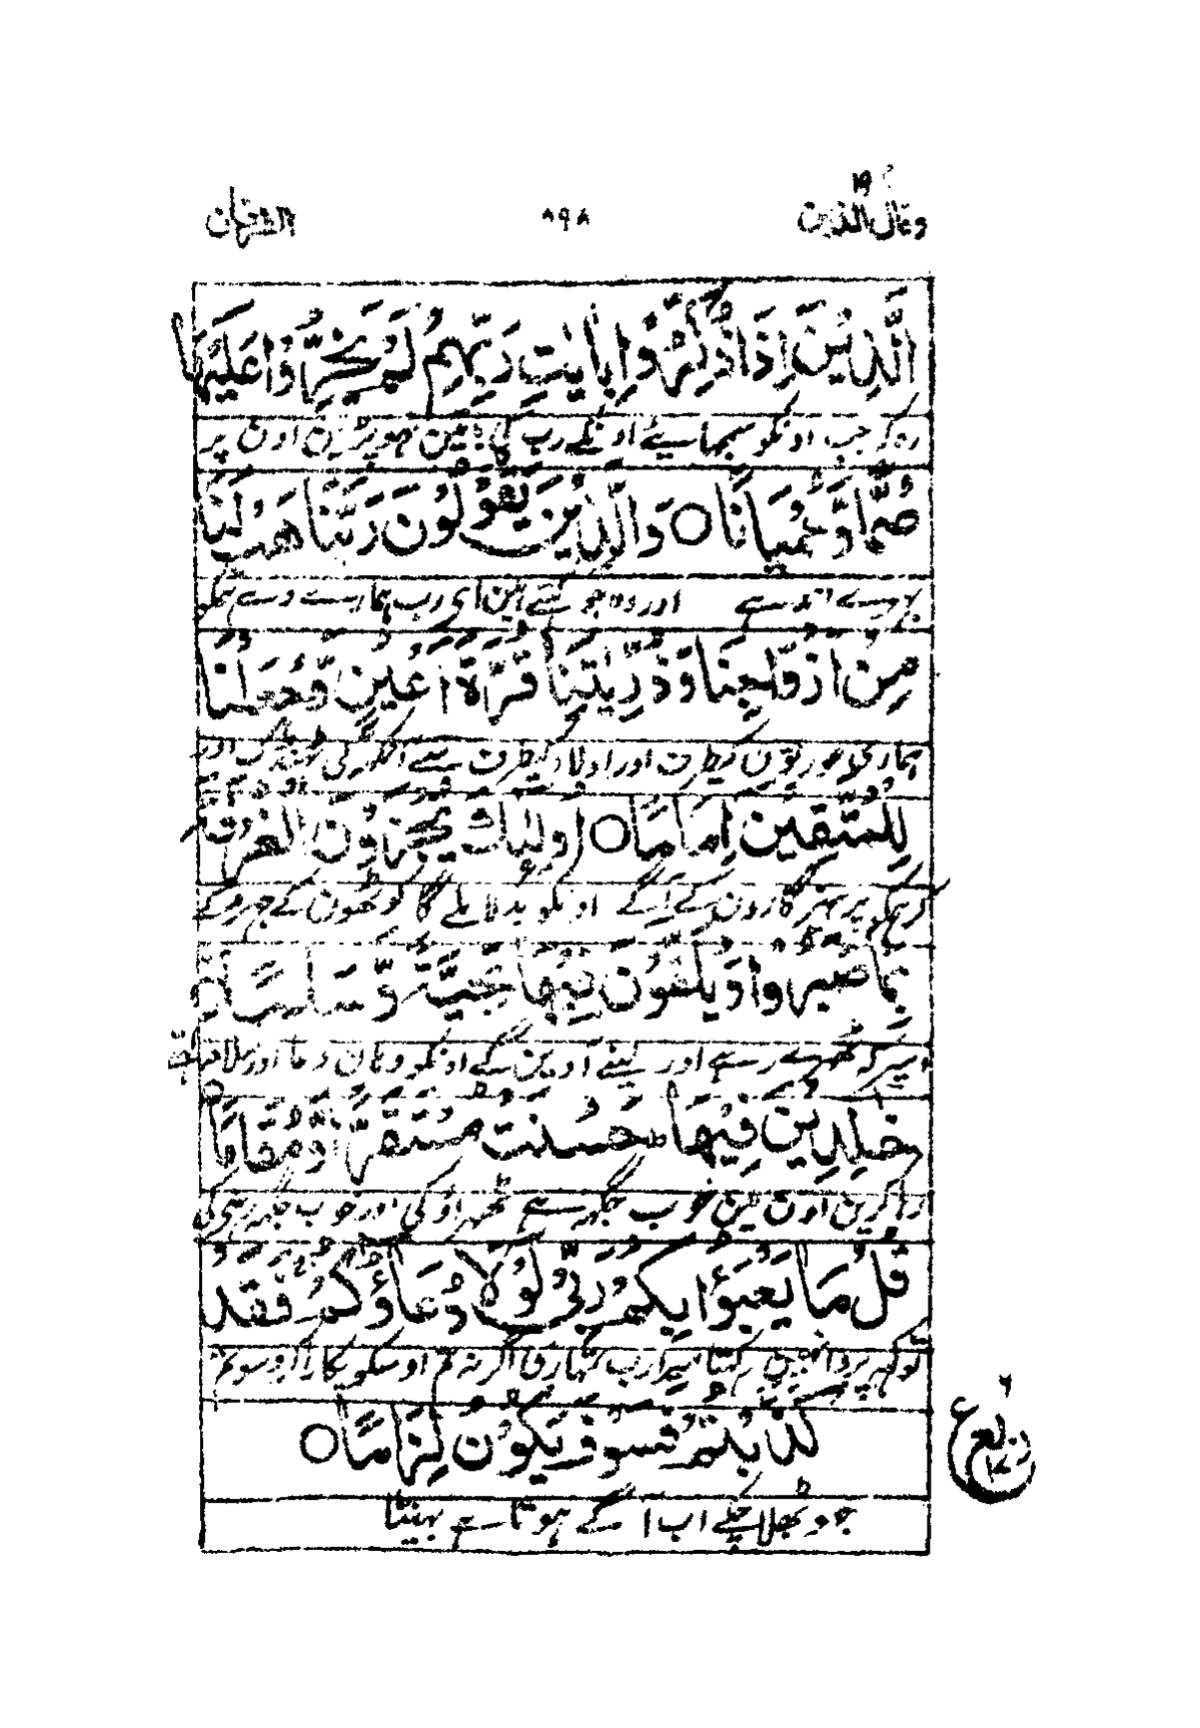 وقال الذین ۱۹
۸۹۸
الفرقان
الَّذِیْنَ اِذَا ذُكِّرُوْا بِاٰیٰتِ رَبِّهِمْ لَمْ یَخِرُّوْا عَلَیْهَا
وہ کہ جب اونکو سمجھائیے اونکے رب کی باتین نہو پڑین اون پر
صُمًّا وَّ عُمْیَانًا ○ وَالَّذِیْنَ یَقُوْلُوْنَ رَبَّنَا هَبْ لَنَا
بہرے اندہے اور وہ جو کہتے ہین ای رب ہمارے دے ہمکو
مِنْ اَزْوَاجِنَا وَ ذُرِّیّٰتِنَا قُرَّةَ اَعْیُنٍ وَّ اجْعَلْنَا
ہماری عورتون کیطرف اور اولاد کیطرف سے آنکھ کی ٹھنڈک اور
لِلْمُتَّقِیْنَ اِمَامًا ○ اُولٰٓئِكَ یُجْزَوْنَ الْغُرْفَةَ
کر ہمکو پرہیزگارون کے آگے اونکو بدلا ملے گا کوٹھون کے جھروکے
بِمَا صَبَرُوْا وَ یُلَقَّوْنَ فِیْهَا تَحِیَّةً وَّ سَلٰمًا
اسپر کہ ٹھہرے رہے اور لینے آوین گے اونکو وہان دعا اور سلام
خٰلِدِیْنَ فِیْهَا ط حَسُنَتْ مُسْتَقَرًّا وَّ مُقَامًا
رہا کرین اون مین خوب جگہہ ہے ٹھہراؤ کی اور خوب جگہہ رہنے کی
قُلْ مَا یَعْبَؤُا بِكُمْ رَبِّیْ لَوْلَا دُعَآؤُكُمْ فَقَدْ
تو کہہ پروا نہین رکھتا میرا رب تمہاری اگر نہ تم اوسکو پکارا کرو سو تم
كَذَّبْتُمْ فَسَوْفَ یَكُوْنُ لِزَامًا ○
جو جھٹلا چکے اب آگے ہوتا ہے بھینٹا
ع
۶
۱۷